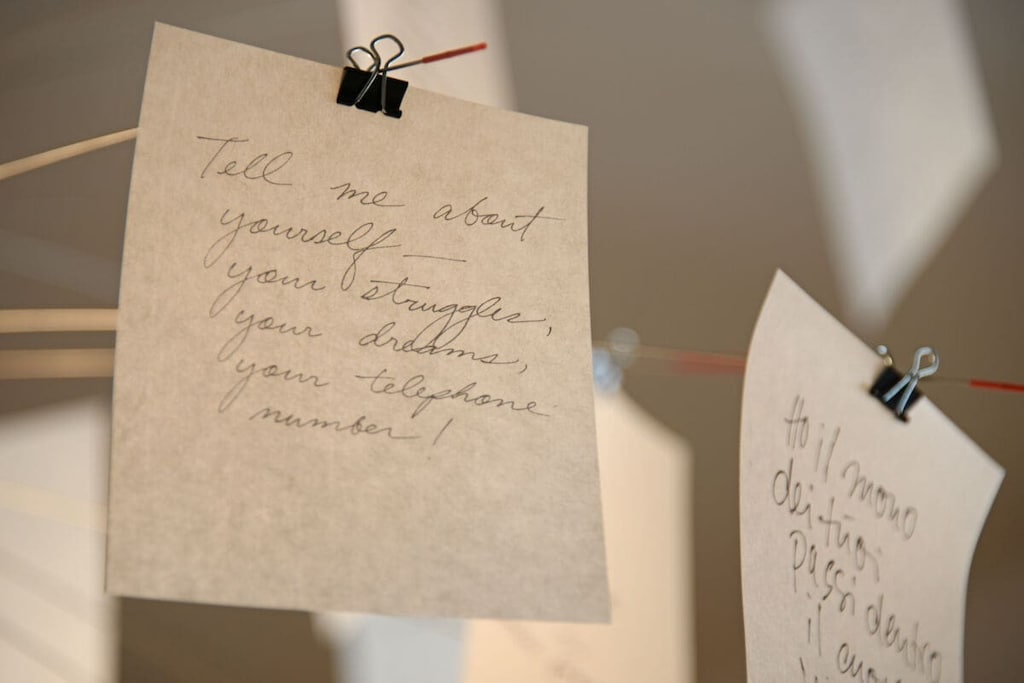 Tell me about
yourself —
your struggles,
your dreams,
your telephone
number!
Ho il mono
dei tuoi
passi dentro
il cuore